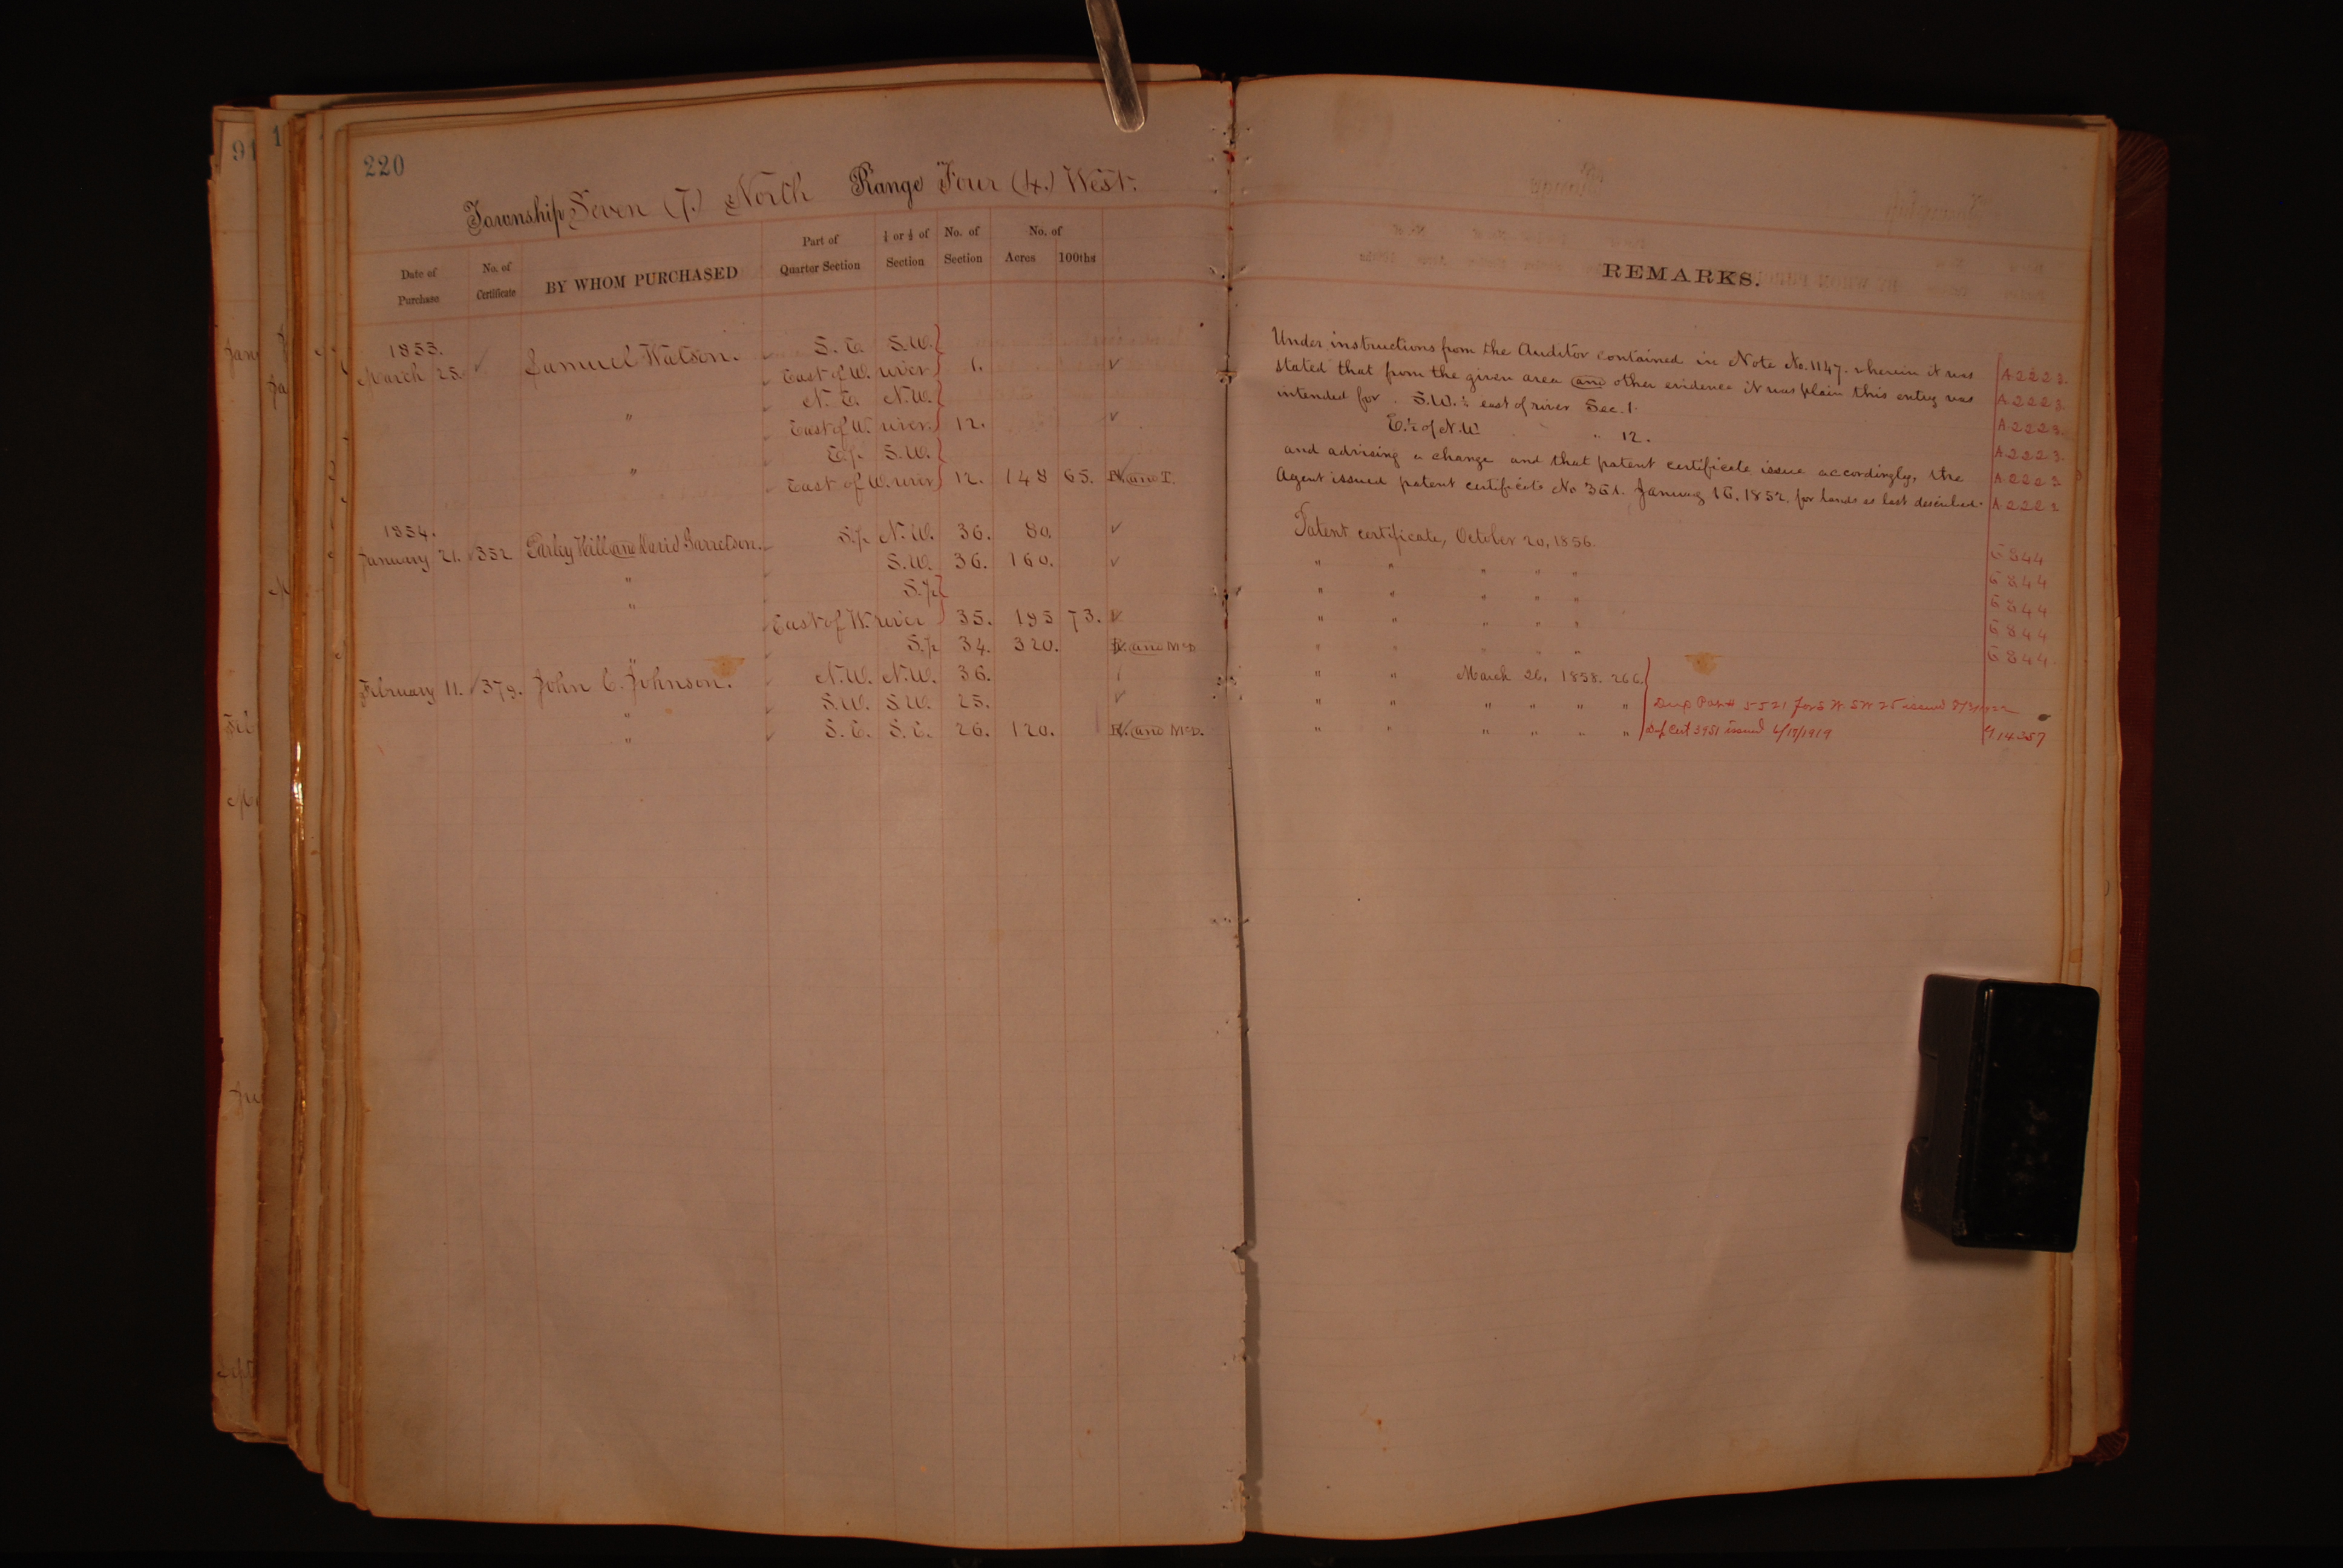 220
Township Seven (7.) North Range Four (4.) West.
Date of Purchase No. of Certificate BY WHOM PURCHASED Part of Quarter Section ¼ or ½ of Section No. of Section No. of Acres 100ths
REMARKS.
1853.
March 25. Samuel Watson. S. E. S.W.
East of W. river 1.
N. E. N.W.
" East of W. river. 12.
E.½ S.W.
" East of W. river 12. 148 65. N. and T.
1854.
January 21. 352 Earley Hill and David Garretson. S.½ N.W. 36. 80.
" S.W. 36. 160.
" S.½
East of W. river 35. 195 73.
" S.½ 34. 320. R. and McD
February 11. 379. John C. Johnson. N.W. N.W. 36.
" S.W. S.W. 25.
" S.E. S.E. 26. 120. R. and McD.
Under instructions from the Auditor contained in Note No. 1147. wherein it was A 2223.
stated that from the given area and other evidence it was plain this entry was A 2223.
intended for S.W. ¼ east of river Sec. 1. A 2223.
E.½ of N.W. " 12. A 2223.
and advising a change and that patent certificate issue accordingly, the A 2223
Agent issued patent certificate No 361. January 16, 1852, for lands as last described. A 2223
Patent certificate, October 20, 1856.
" " " " " 6844
" " " " " 6844
" " " " " 6844
" " " " " 6844
6844
" " March 26, 1858. 266.
" " " " " " Dup Pat# 5521 for S W SW 25 issued
" " " " " " Dup Cert 3951 issued 6/18/1919 914357